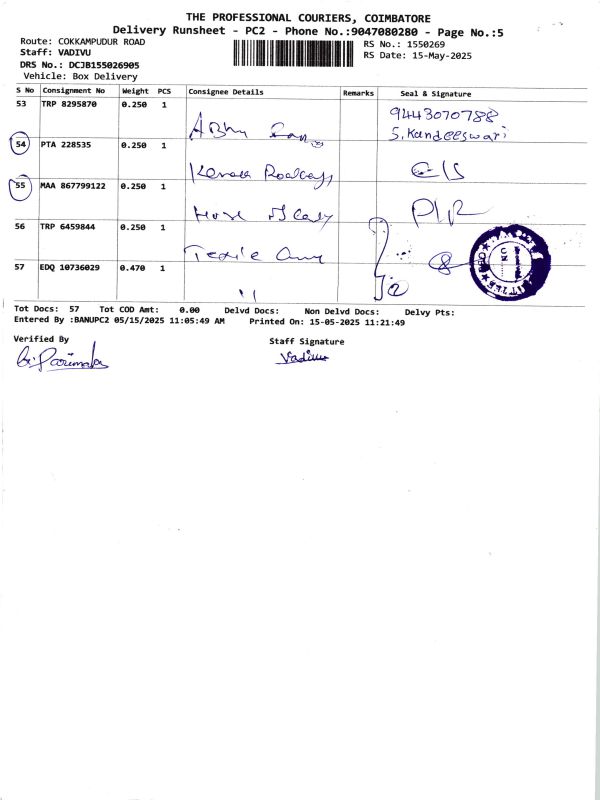 THE PROFESSIONAL COURIERS, COIMBATORE
Delivery Runsheet - PC2 - Phone No.:9047080280 - Page No.:5
Route: COKKAMPUDUR ROAD
Staff: VADIVU
DRS No.: DCJB155026905
Vehicle: Box Delivery
RS No.: 1550269
RS Date: 15-May-2025
S No Consignment No Weight PCS Consignee Details Remarks Seal & Signature
53 TRP 8295870 0.250 1 9443070788
S.Kandeeswari
54 PTA 228535 0.250 1 Kerala Roadways
55 MAA 867799122 0.250 1
56 TRP 6459844 0.250 1
57 EDQ 10736029 0.470 1 "
Tot Docs: 57 Tot COD Amt: 0.00 Delvd Docs: Non Delvd Docs: Delvy Pts:
Entered By :BANUPC2 05/15/2025 11:05:49 AM Printed On: 15-05-2025 11:21:49
Verified By
Staff Signature
Vadivu